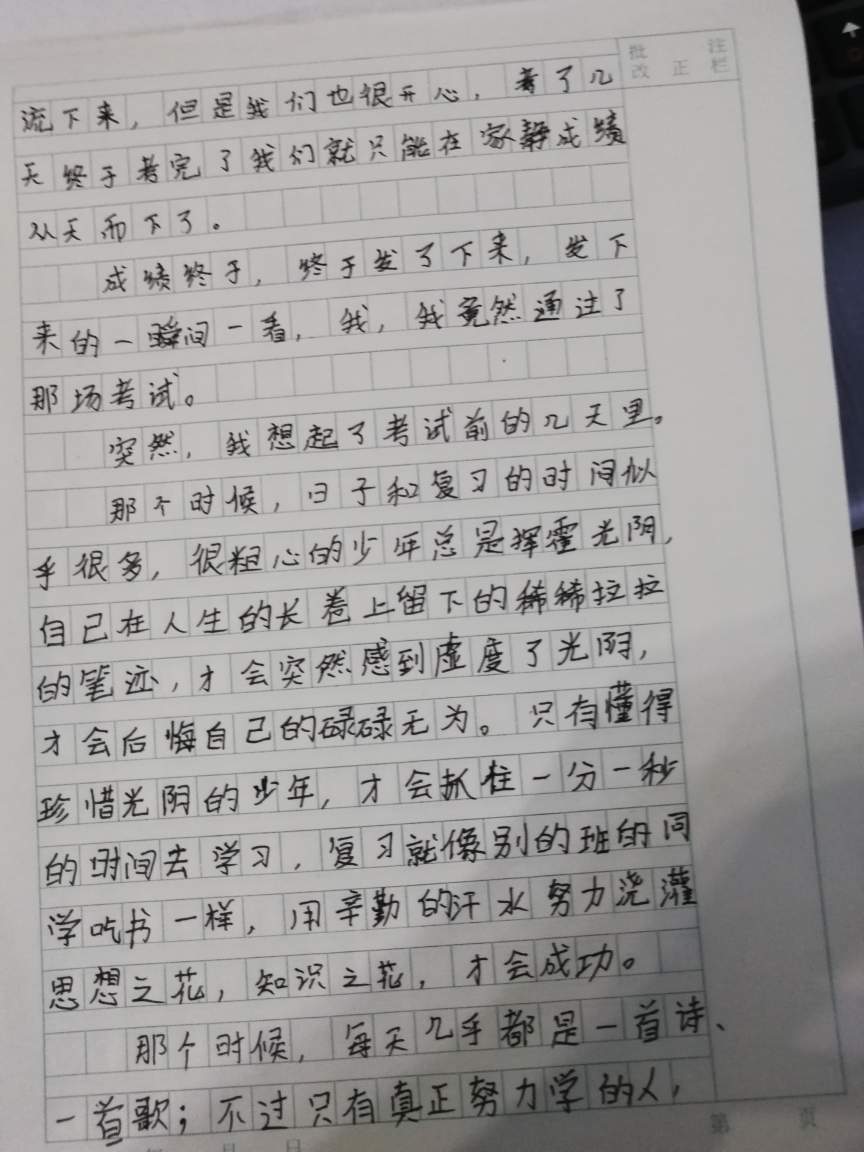 批注
改正栏
流下来，但是我们也很开心，考了几
天终于考完了我们就只能在家静成绩
从天而下了。
成绩终于，终于发了下来，发下
来的一瞬间一看，我，我竟然通过了
那场考试。
突然，我想起了考试前的几天里。
那个时候，日子和复习的时间似
乎很多，很粗心的少年总是挥霍光阴，
自己在人生的长卷上留下的稀稀拉拉
的笔迹，才会突然感到虚度了光阴，
才会后悔自己的碌碌无为。只有懂得
珍惜光阴的少年，才会抓住一分一秒
的时间去学习，复习就像别的班的同
学吃书一样，用辛勤的汗水努力浇灌
思想之花，知识之花，才会成功。
那个时候，每天几乎都是一首诗、
一首歌；不过只有真正努力学的人，
年 月 日 第 页